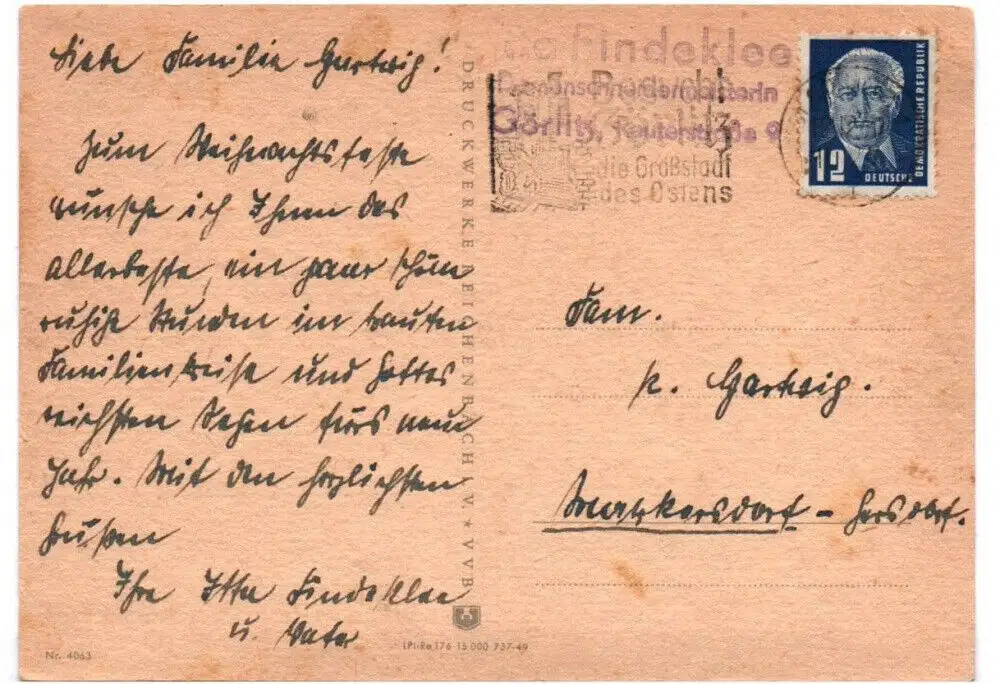 Liebe Familie Hartwig!
Zum Weihnachtsfeste
wünsche ich Ihnen das
allerbeste, ein paar schöne
ruhige Stunden im trauten
Familienkreise und Gottes
reichsten Segen fürs neue
Jahr. Mit den herzlichsten
Grüßen
Ihre Itta Findeklee
u. Vater
Nr. 4063
DRUCKWERKE REICHENBACH I. V. ★ VVB
LPI-Re 176 15 000 737-49
Findeklee
Görlitz,
Besucht
Görlitz
die Großstadt
des Ostens
12
DEUTSCHE
DEMOKRATISCHE REPUBLIK
Fam.
Hartwig.
Markersdorf